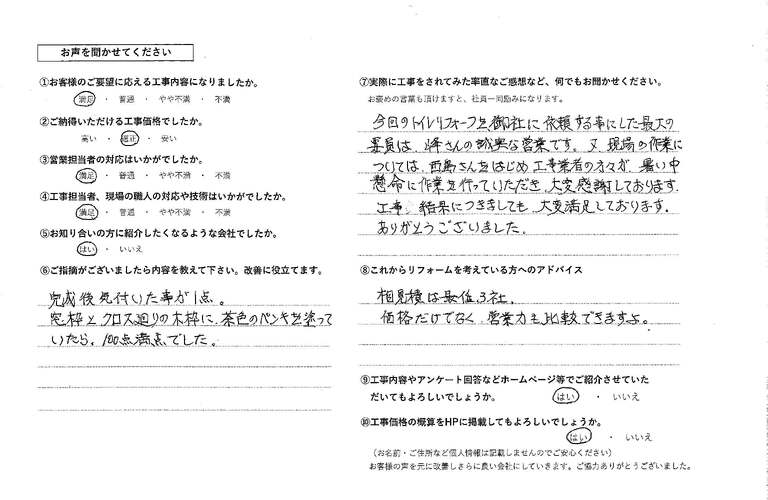 お声を聞かせてください
①お客様のご要望に応える工事内容になりましたか。
満足 ・ 普通 ・ やや不満 ・ 不満
②ご納得いただける工事価格でしたか。
高い ・ 適正 ・ 安い
③営業担当者の対応はいかがでしたか。
満足 ・ 普通 ・ やや不満 ・ 不満
④工事担当者、現場の職人の対応や技術はいかがでしたか。
満足 ・ 普通 ・ やや不満 ・ 不満
⑤お知り合いの方に紹介したくなるような会社でしたか。
はい ・ いいえ
⑥ご指摘がございましたら内容を教えて下さい。改善に役立てます。
完成後気付いた事が1点。
窓枠とクロス廻りの木枠に、茶色のペンキを塗って
いたら、100点満点でした。
⑦実際に工事をされてみた率直なご感想など、何でもお聞かせください。
お褒めの言葉も頂けますと、社員一同励みになります。
今回のトイレリフォームを御社に依頼する事にした最大の
要員は、さんの誠実な営業です。又、現場の作業に
ついては、西島さんをはじめ工事業者の方々が、暑い中
懸命に作業を行っていただき、大変感謝しております。
工事、結果につきましても、大変満足しております。
ありがとうございました。
⑧これからリフォームを考えている方へのアドバイス
相見積は最低3社。
価格だけでなく、営業力も比較できますよ。
⑨工事内容やアンケート回答などホームページ等でご紹介させていた
だいてもよろしいでしょうか。 はい ・ いいえ
⑩工事価格の概算をHPに掲載してもよろしいでしょうか。
はい ・ いいえ
（お名前・ご住所など個人情報は記載しませんのでご安心ください）
お客様の声を元に改善しさらに良い会社にしていきます。ご協力ありがとうございました。